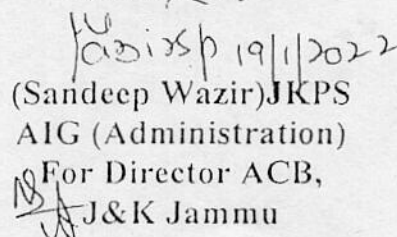 19/1/2022
(Sandeep Wazir)JKPS
AIG (Administration)
For Director ACB,
J&K Jammu